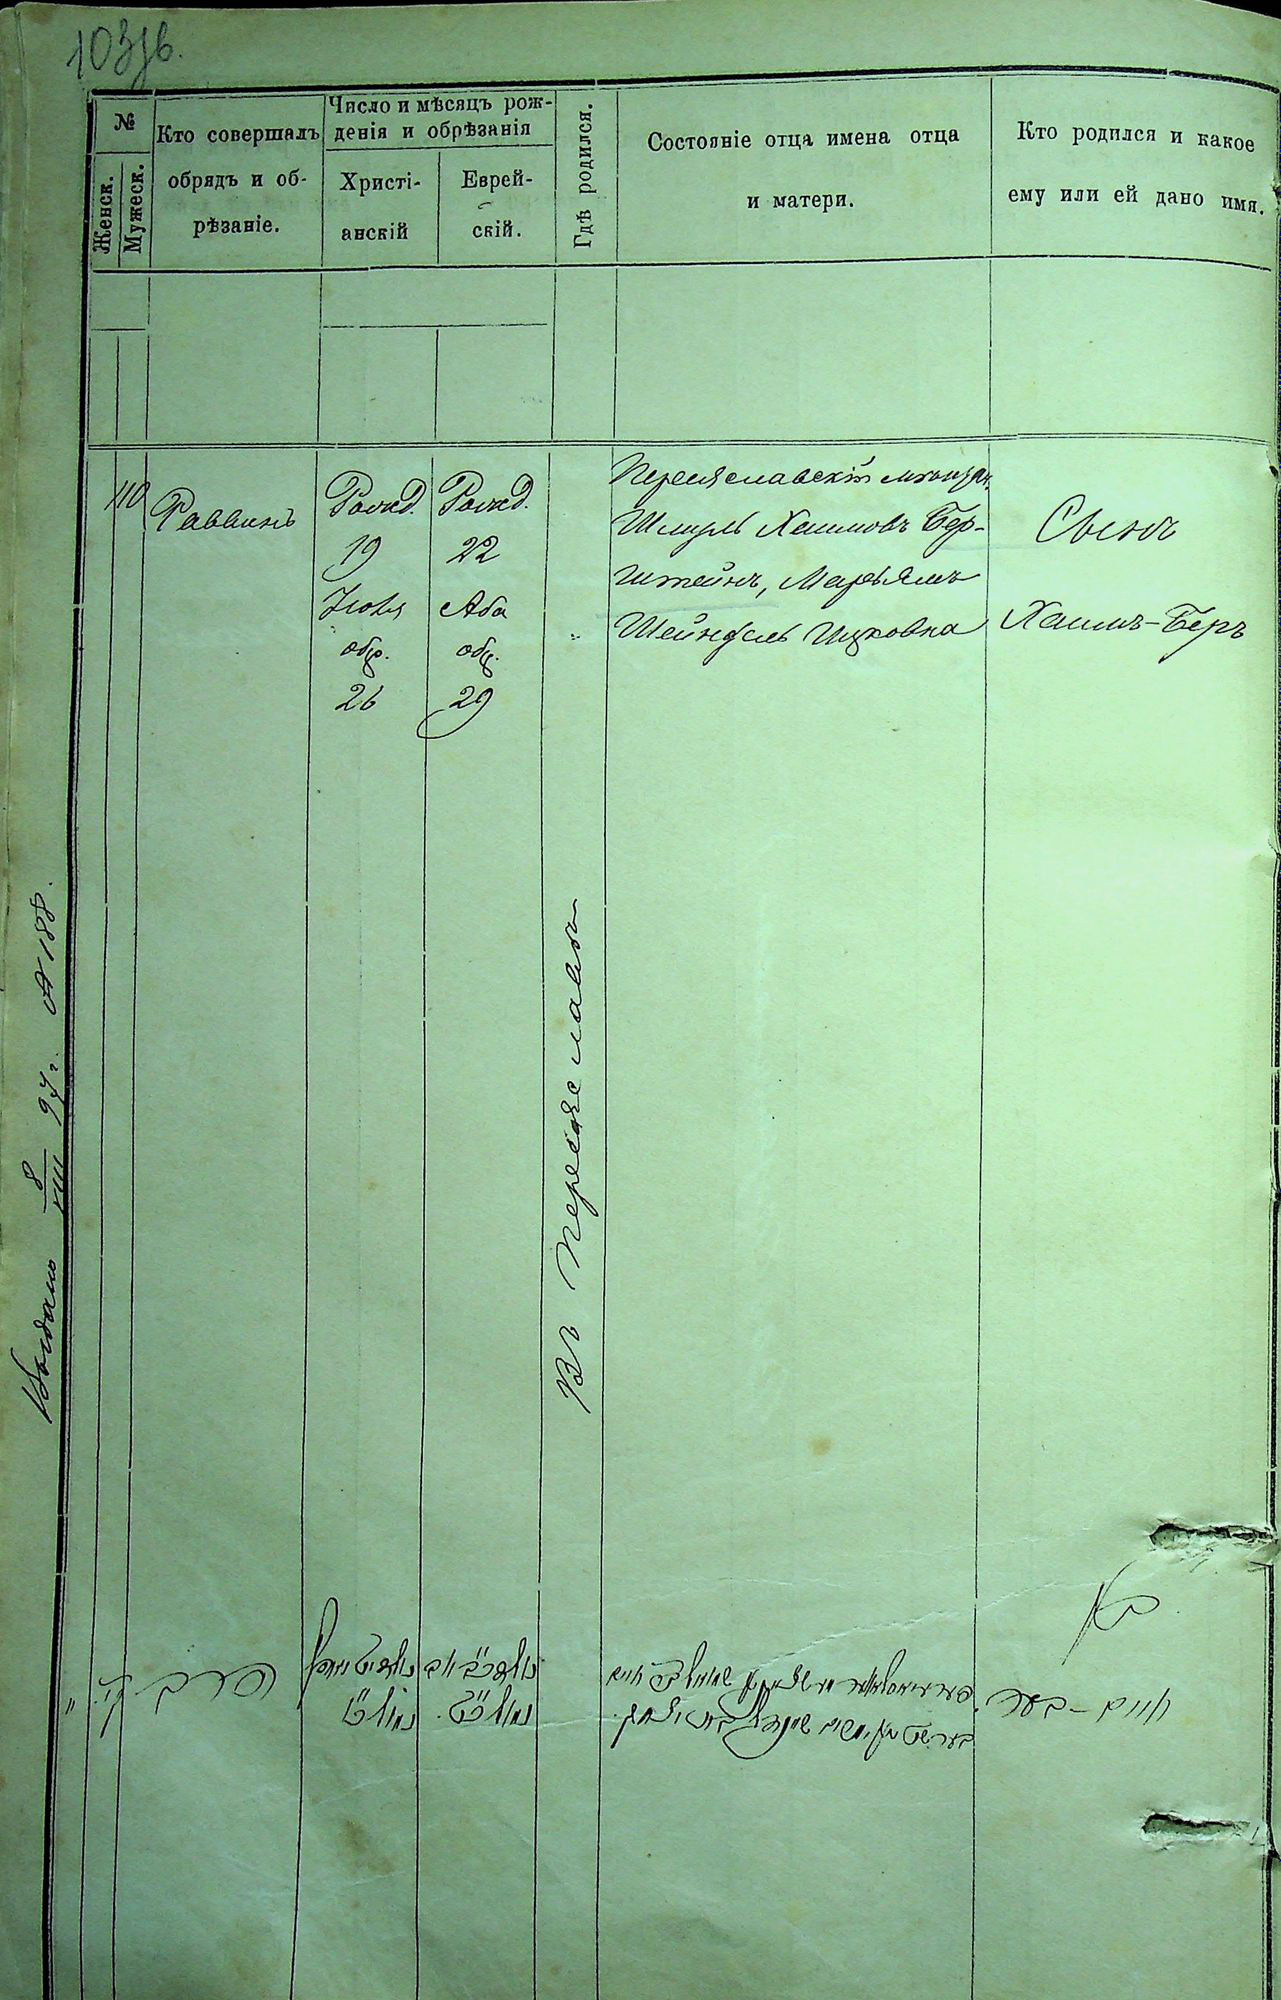 103об.
№
Женск.
Мужеск.
Кто совершалъ
обрядъ и об-
рѣзаніе.
Число и мѣсяцъ рож-
денія и обрѣзанія
Христі-
анскій
Еврей-
скій.
Гдѣ родился.
Состояніе отца имена отца
и матери.
Кто родился и какое
ему или ей дано имя.
110
Раввинъ
Рожд.
19
Іюля
обр.
26
Рожд.
22
Аба
обр.
29
Въ Переяславѣ
Переяславскій мѣщан.
Шмуль Хаимовъ Бер-
штейнъ, Марьямъ
Шейндель Ицковна
Сынъ
Хаимъ-Беръ
Выдано 8/VIII 97 г. № 188.
בן
חיים - בער